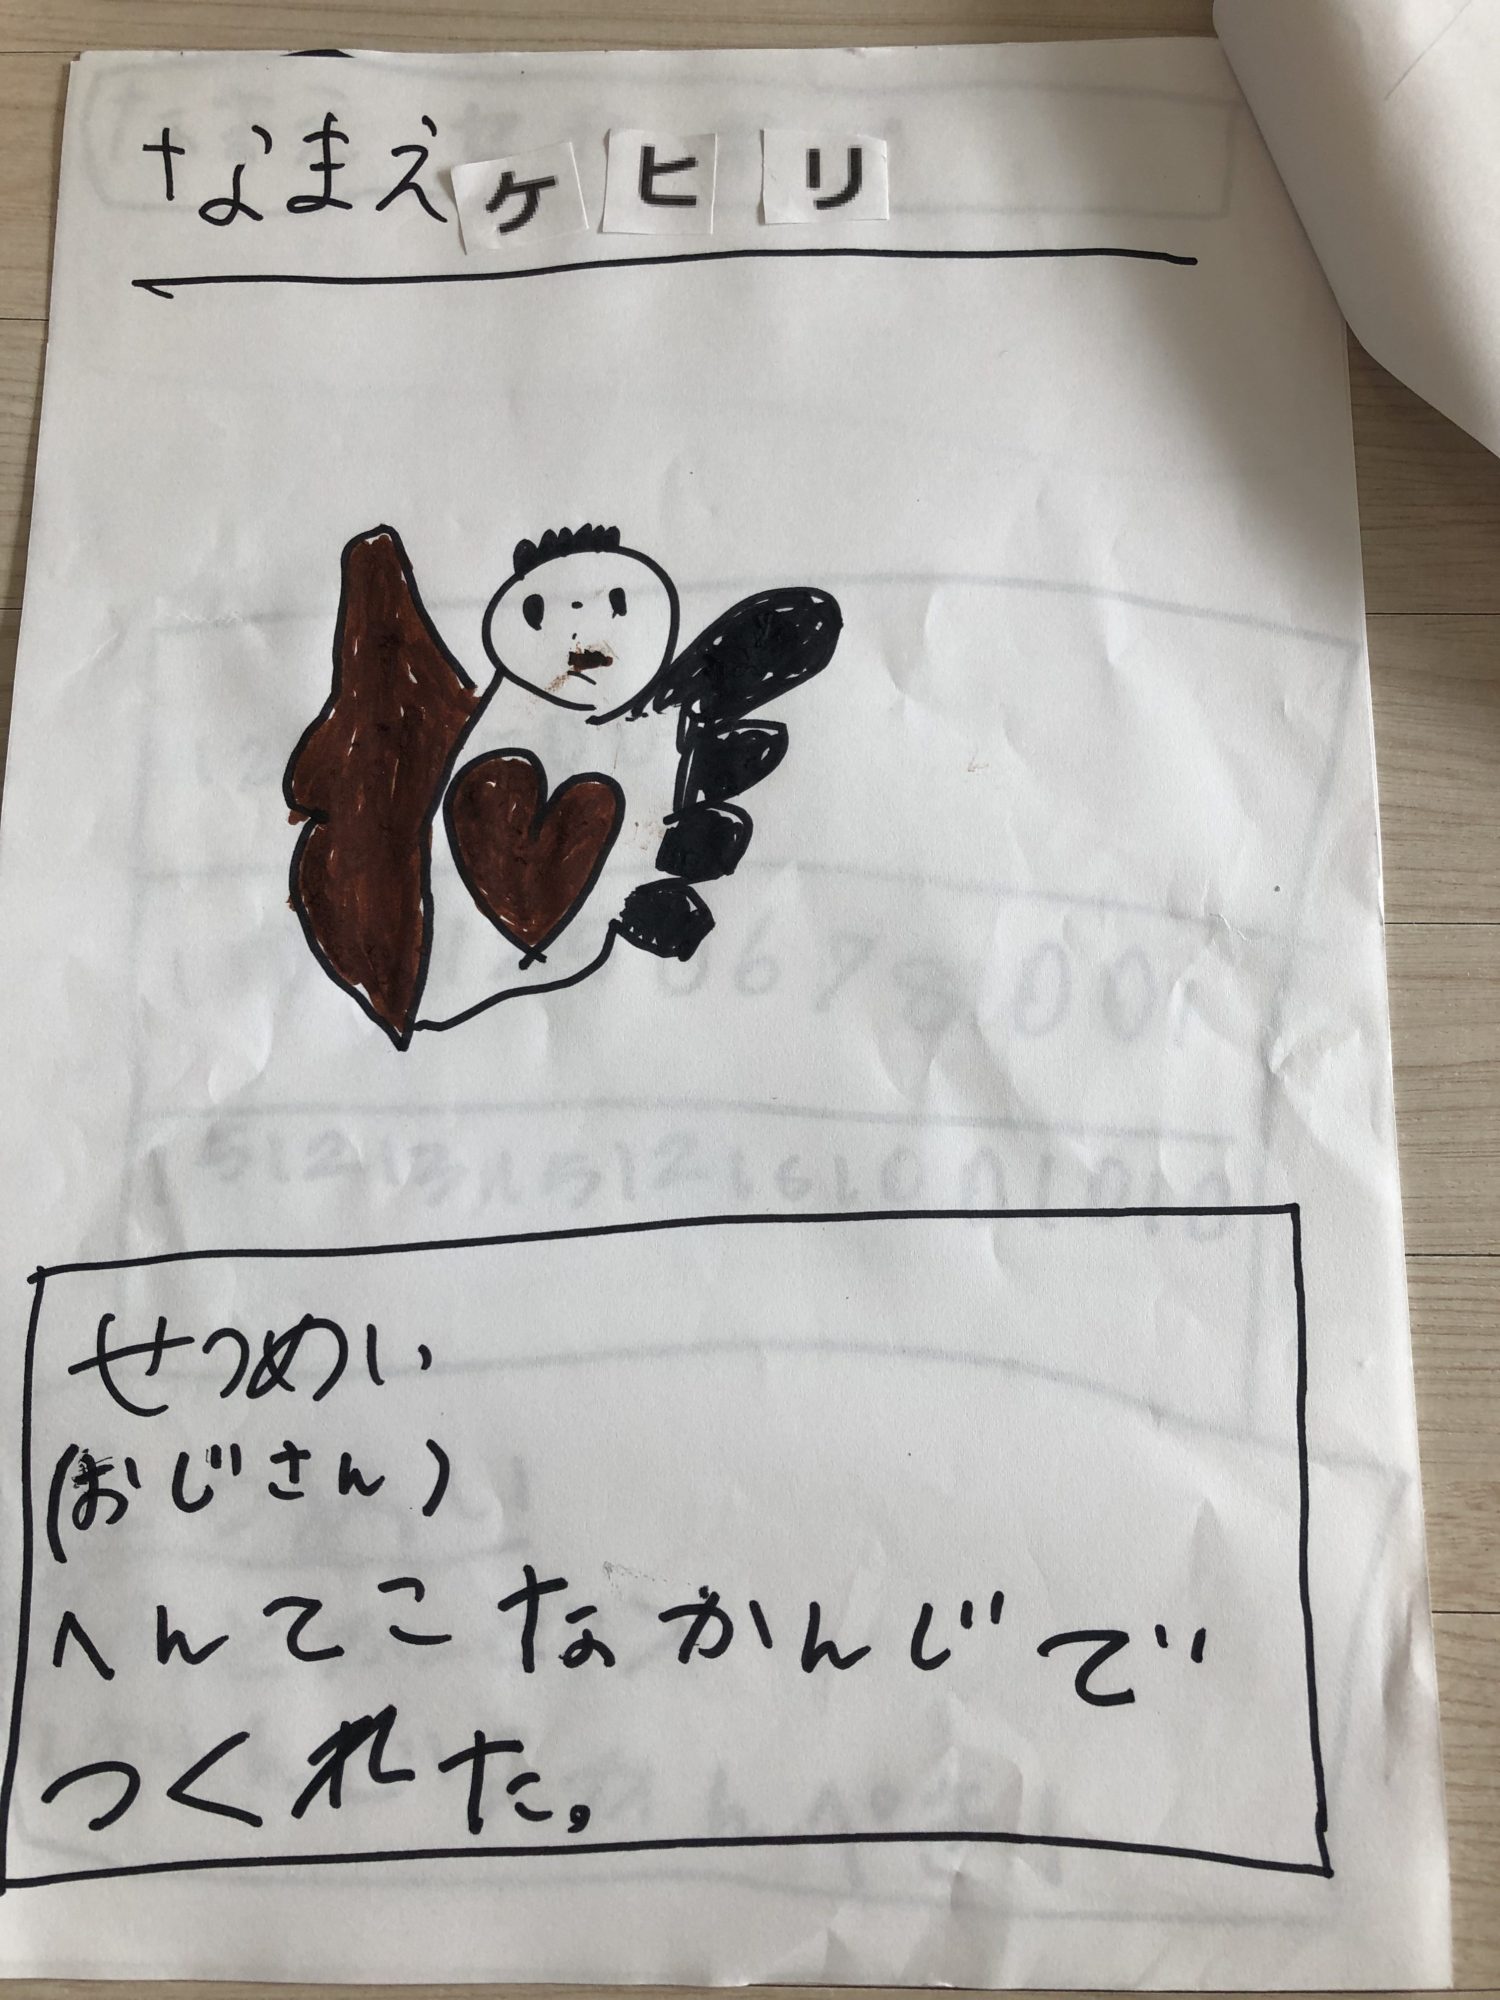 なまえ ケヒリ
せつめい
(おじさん)
へんてこなかんじで
つくれた。